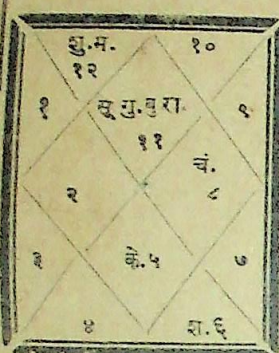 शु.म. १०
१२
१ सू.गु.बु रा. ९
११
चं.
२ ८
३ के.५ ७
४ श.६